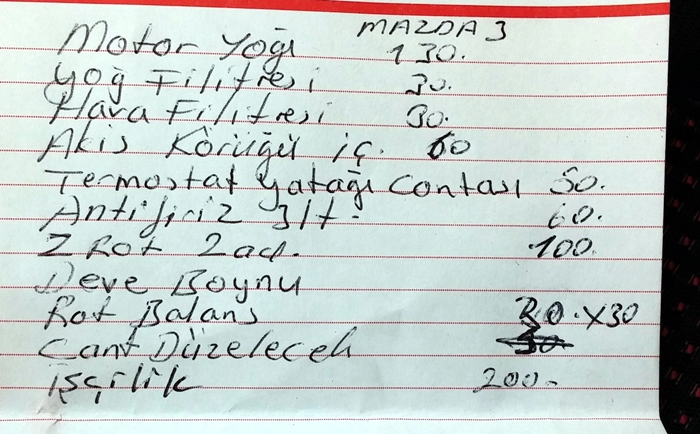 MAZDA 3
Motor Yağı 130.
Yağ Filitresi 30.
Hava Filitresi 30.
Akis Körüğü iç. 60
Termostat Yatağı Contası 50.
Antifiriz 3lt. 60.
Z Rot 2 ad. 100.
Deve Boynu
Rot Balans 30.x30
Cant Düzelecek
işçilik 200-